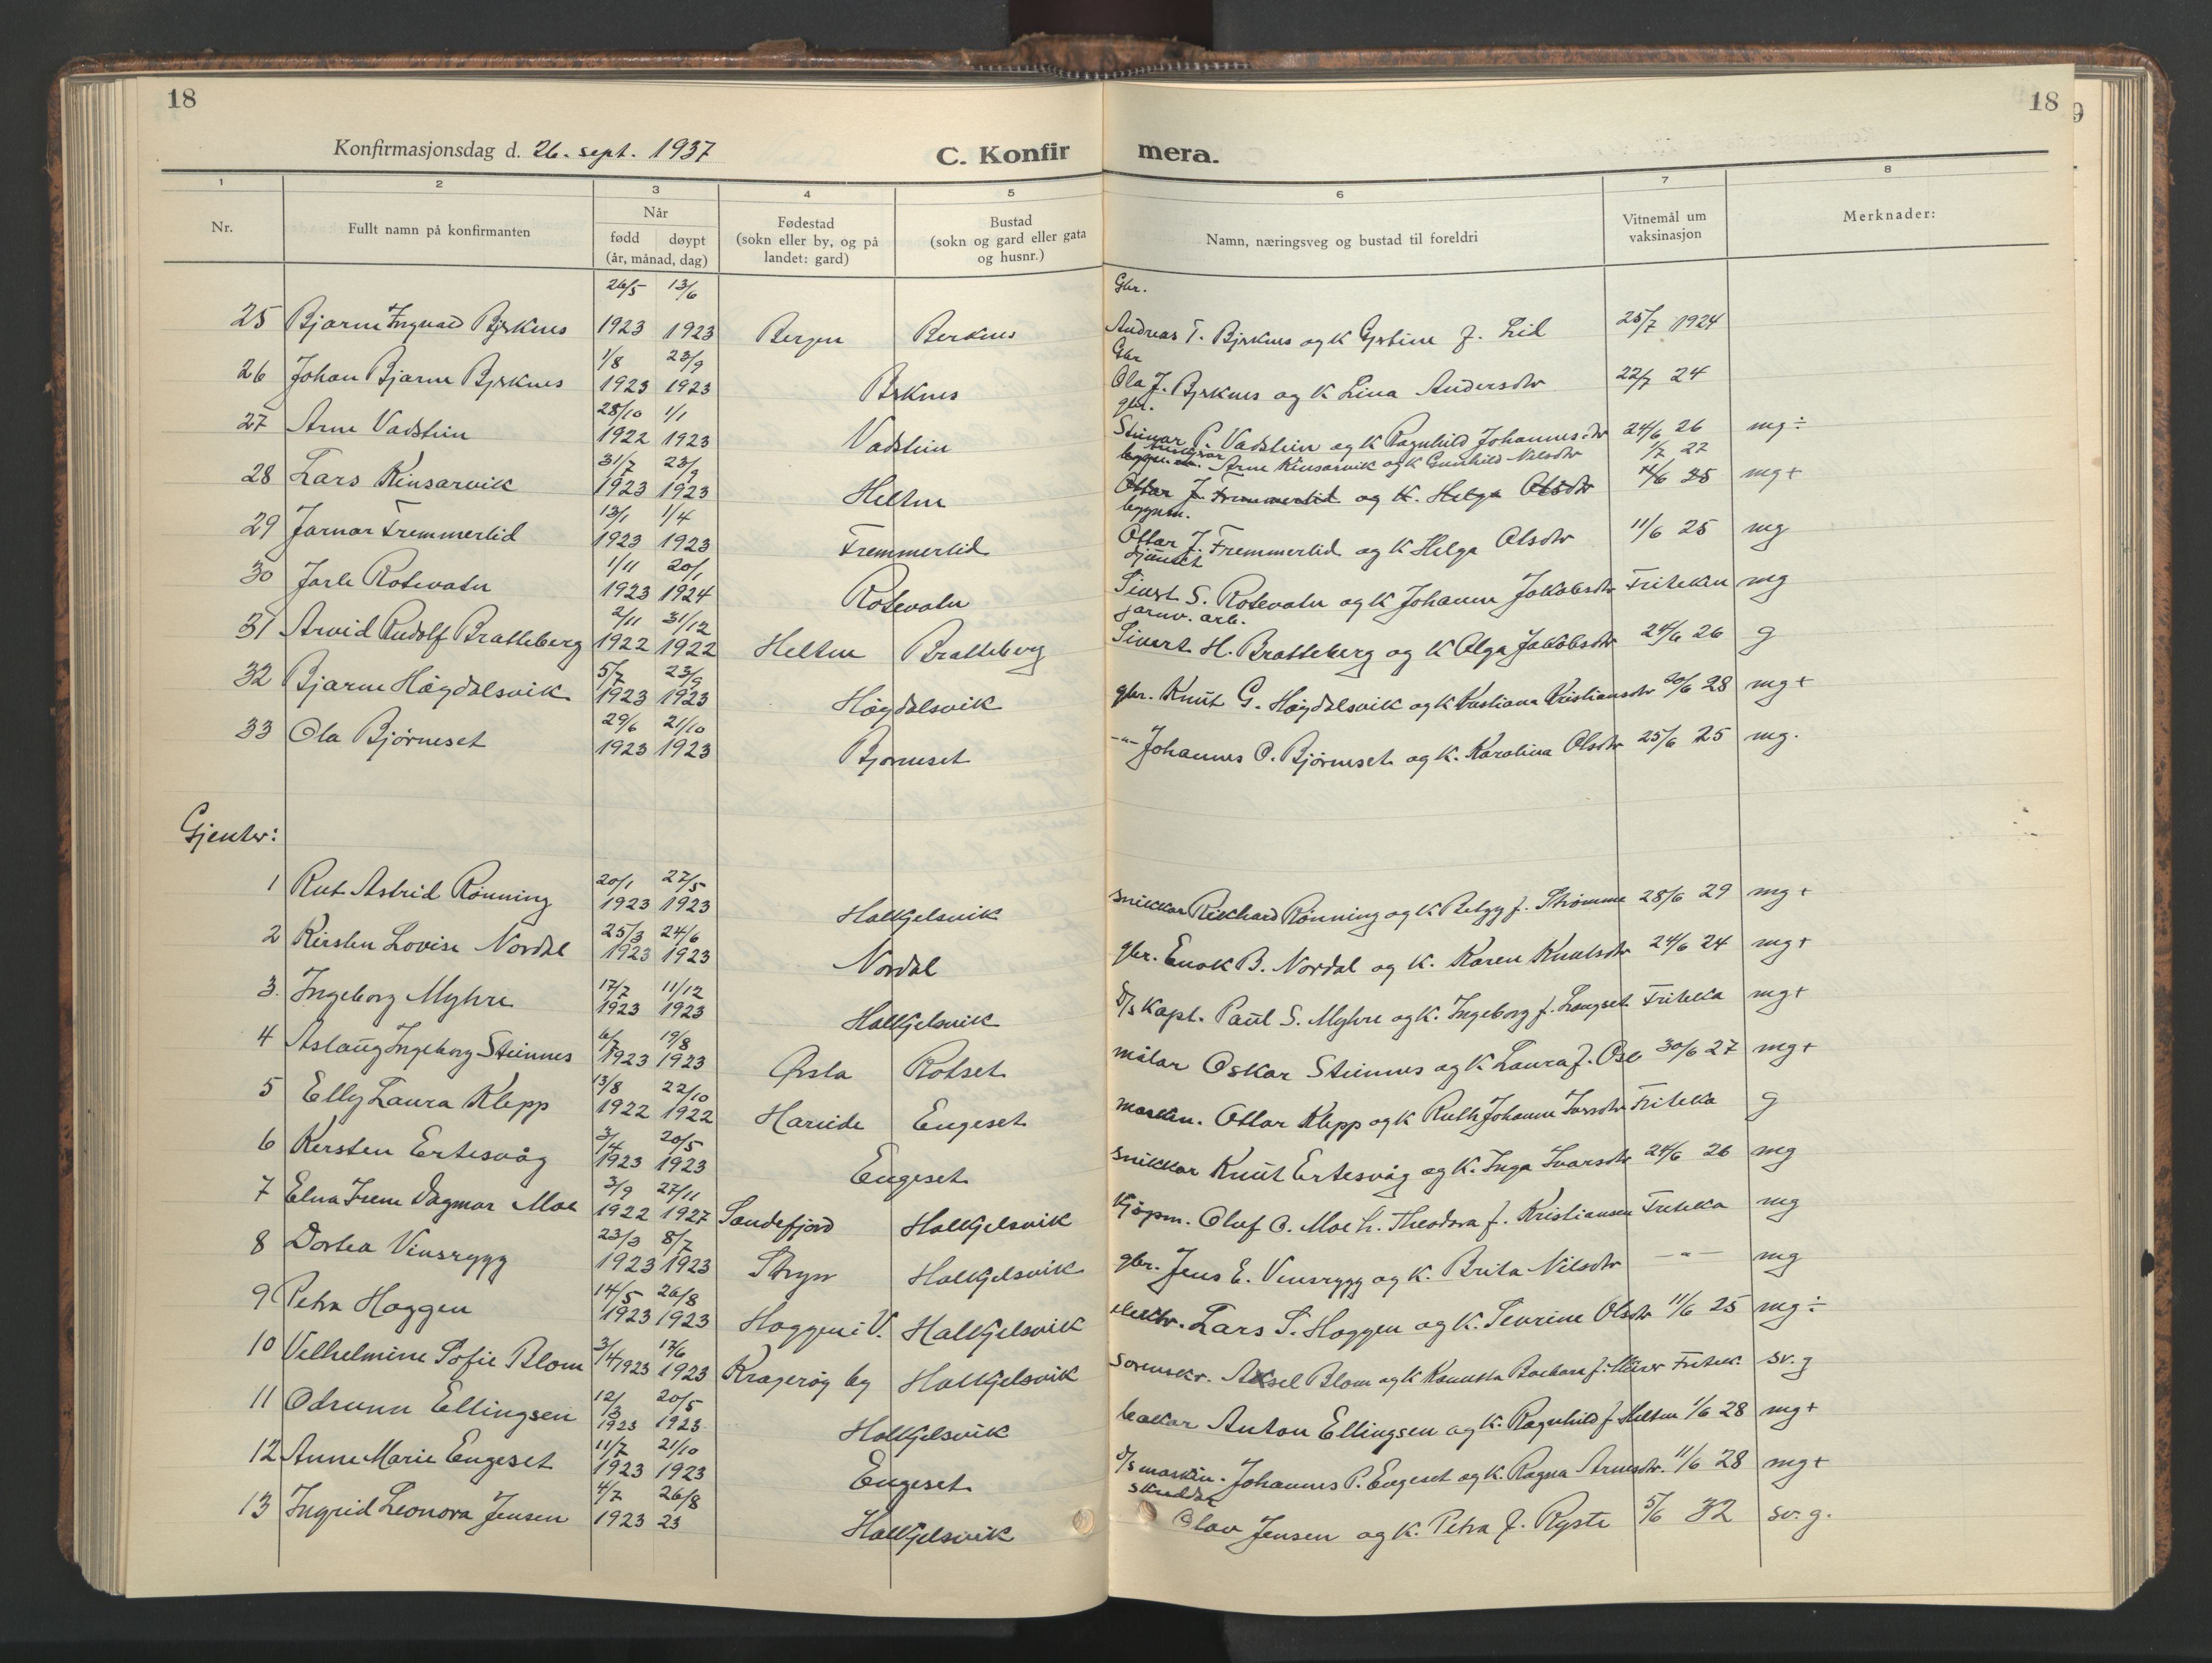 18
18
9
Konfirmasjonsdag d. 26. sept. 1937
C. Konfir mera.
1 2 3 4 5 6 7 8
Nr. Fullt namn på konfirmanten Når Fødestad Bustad Namn, næringsveg og bustad til foreldri Vitnemål um Merknader:
fødd døypt (sokn eller by, og på (sokn og gard eller gata vaksinasjon
(år, månad, dag) landet: gard) og husnr.)
26/5 13/6 Gbr.
25 Bjarne Ingvald Bjrknes 1923 1923 Bergen Berknes Andreas T. Bjrknes og K Gjrtine f. Lid 25/7 1924
1/8 23/9 Gbr
26 Johan Bjarne Bjrknes 1923 1923 Brknes Ola J. Bjrknes og K Lina Andersdtr 22/7 24
28/10 1/1 gbr.
27 Arne Vadstein 1922 1923 Vadstein Steinar P. Vadstein og K Ragnhild Johannesdtr 24/6 26 mg ÷
31/7 23/9 Arne Kinsarvik og K Gunhild Nilsdtr 1/7 27
28 Lars Kinsarvik 1923 1923 Heltne Ottar J. Fremmerlid og K. Helga Olsdtr 11/6 25 mg +
13/1 1/4 byggm.
29 Jarnar Fremmerlid 1923 1923 Fremmerlid Ottar J. Fremmerlid og K Helga Olsdtr 11/6 25 mg
1/11 20/1
30 Jarle Rotevatn 1923 1924 Rotevatn Sivert S. Rotevatn og K Johanne Jakobsdtr Friteken mg
2/11 31/12 jarnv. arb.
31 Arvid Rudolf Bratteberg 1922 1922 Heltne Bratteberg Sivert H. Bratteberg og K Olga Jakobsdtr 24/6 26 g
5/7 23/9
32 Bjarne Høgdalsvik 1923 1923 Høgdalsvik gbr. Knut G. Høgdalsvik og K Kristiansdtr 20/6 28 mg +
29/6 21/10
33 Ola Bjørneset 1923 1923 Bjørneset -"- Johannes O. Bjørneset og K. Karolina Olsdtr 25/6 25 mg.
Gjenter:
20/1 27/5
1 Rut Astrid Rønning 1923 1923 Halkjelsvik snikkar Rikhard Rønning og K Betzy f. Strømme 28/6 29 mg +
25/3 24/6
2 Kirsten Lovise Nordal 1923 1923 Nordal gbr. Enok B. Nordal og K. Karen Knutsdtr 24/6 24 mg +
17/7 11/12
3. Ingeborg Myhre 1923 1923 Halkjelsvik D/s Kapt. Paul S. Myhre og K. Ingeborg f. Langset Fritekla mg +
6/7 19/8
4 Aslaug Ingeborg Steinnes 1923 1923 Ørsta Rotset målar Oskar Steinnes og K Laura f. Ose 30/6 27 mg +
13/8 22/10
5 Elly Laura Klepp 1922 1922 Hareide Engeset maskin. Ottar Klepp og K Ruth Johanne Friteka g
3/4 20/5
6 Kersten Ertesvåg 1923 1923 Engeset snikkar Knut Ertesvåg og K. Inga Ivarsdtr 24/6 26 mg
3/9 27/11
7 Elna Irene Dagmar Moe 1922 1927 Sandefjord Halkjelsvik Kjøpm. Oluf O. Moe h. Theodora f. Kristiansen Friteka mg
23/3 8/7
8 Dortea Vinsrygg 1923 1923 Stryn Halkjelsvik gbr. Jens E. Vinsrygg og K. Brita Nilsdtr -"- mg
14/5 26/8
9 Petra Hoggen 1923 1923 Hoggen i V. Halkjelsvik elektr. Lars S. Hoggen og K. Sevrine Olsdtr 11/6 25 mg ÷
3/4 17/6
10 Vilhelmine Sofie Blom 1923 1923 Kragerøy by Halkjelsvik sorenskr. Aksel Blom og K Barbara f. Fritek. sv. g
12/3 20/5
11 Odrunn Ellingsen 1923 1923 Halkjelsvik bakar Anton Ellingsen og K. Ragnhild f. Heltne 1/6 28 mg +
11/7 21/10
12 Anne Marie Engeset 1923 1923 Engeset D/s maskin. Johannes P. Engeset og K. Ragna Arnesdtr. 11/6 28 mg +
4/7 26/8 skreddar
13 Ingrid Leonora Jensen 1923 23 Halkjelsvik Olav Jensen og K. Petra f. Ryste 5/6 32 sv. g.